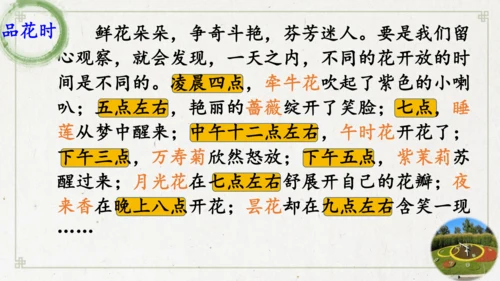 品花时
鲜花朵朵，争奇斗艳，芬芳迷人。要是我们留
心观察，就会发现，一天之内，不同的花开放的时
间是不同的。凌晨四点，牵牛花吹起了紫色的小喇
叭；五点左右，艳丽的蔷薇绽开了笑脸；七点，睡
莲从梦中醒来；中午十二点左右，午时花开花了；
下午三点，万寿菊欣然怒放；下午五点，紫茉莉苏
醒过来；月光花在七点左右舒展开自己的花瓣；夜
来香在晚上八点开花；昙花却在九点左右含笑一现
……